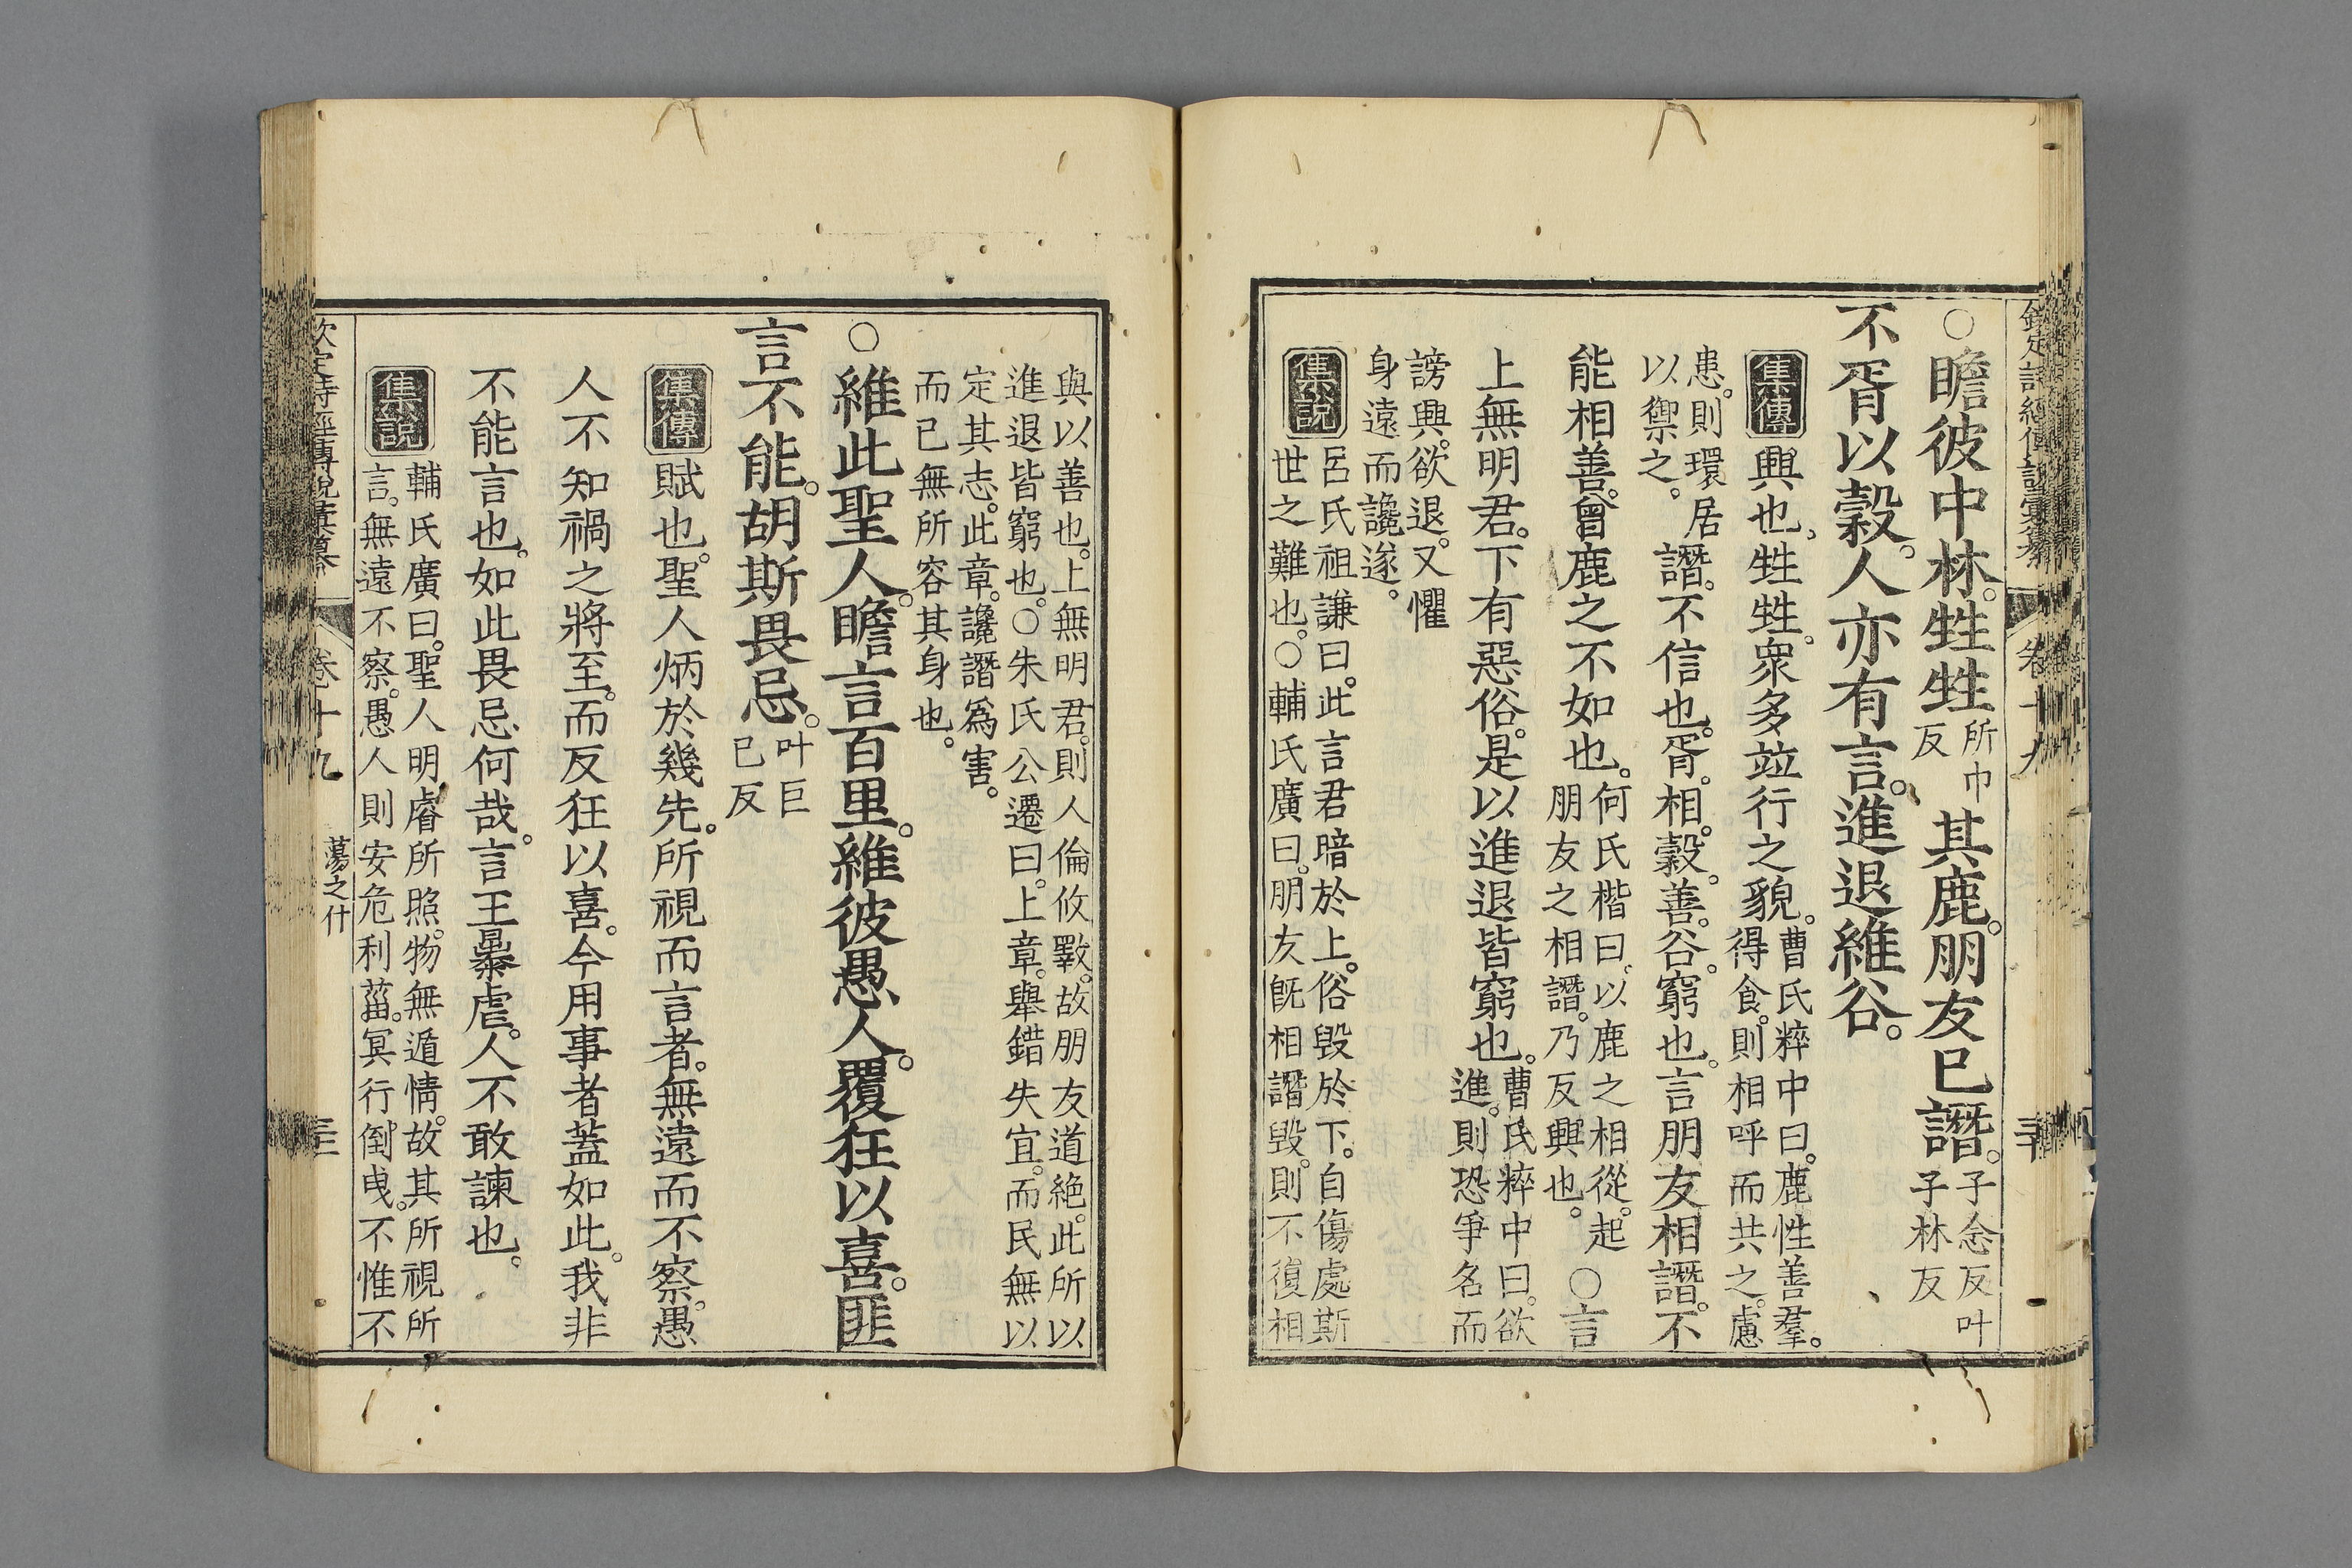 欽定詩經傳說彙纂 卷十九
○瞻彼中林。甡甡所巾反其鹿。朋友已譖。子念反叶子林反
不胥以穀。人亦有言。進退維谷。
集傳 興也。甡甡。衆多竝行之貌。曹氏粹中曰。鹿性善羣。得食。則相呼而共之。慮
患。則環居以禦之。譖。不信也。胥。相。穀。善。谷。窮也。言朋友相譖。不
能相善。曾鹿之不如也。何氏楷曰。以鹿之相從。起朋友之相譖。乃反興也。○言
上無明君。下有惡俗。是以進退皆窮也。曹氏粹中曰。欲進。則恐爭名而
謗興。欲退。又懼身遠而讒遂。
集說 呂氏祖謙曰。此言君暗於上。俗毀於下。自傷處斯
世之難也。○輔氏廣曰。朋友既相譖毀。則不復相
與以善也。上無明君。則人倫攸斁。故朋友道絕。此所以
進退皆窮也。○朱氏公遷曰。上章。舉錯失宜。而民無以
定其志。此章。讒譖爲害。
而已無所容其身也。
○維此聖人。瞻言百里。維彼愚人。覆狂以喜。匪
言不能。胡斯畏忌。叶巨已反
集傳 賦也。聖人炳於幾先。所視而言者。無遠而不察。愚
人不知禍之將至。而反狂以喜。今用事者蓋如此。我非
不能言也。如此畏忌何哉。言王暴虐。人不敢諫也。
集說 輔氏廣曰。聖人明睿所照。物無遁情。故其所視所
言。無遠不察。愚人則安危利菑。冥行倒曳。不惟不
欽定詩經傳說彙纂 卷十九 蕩之什